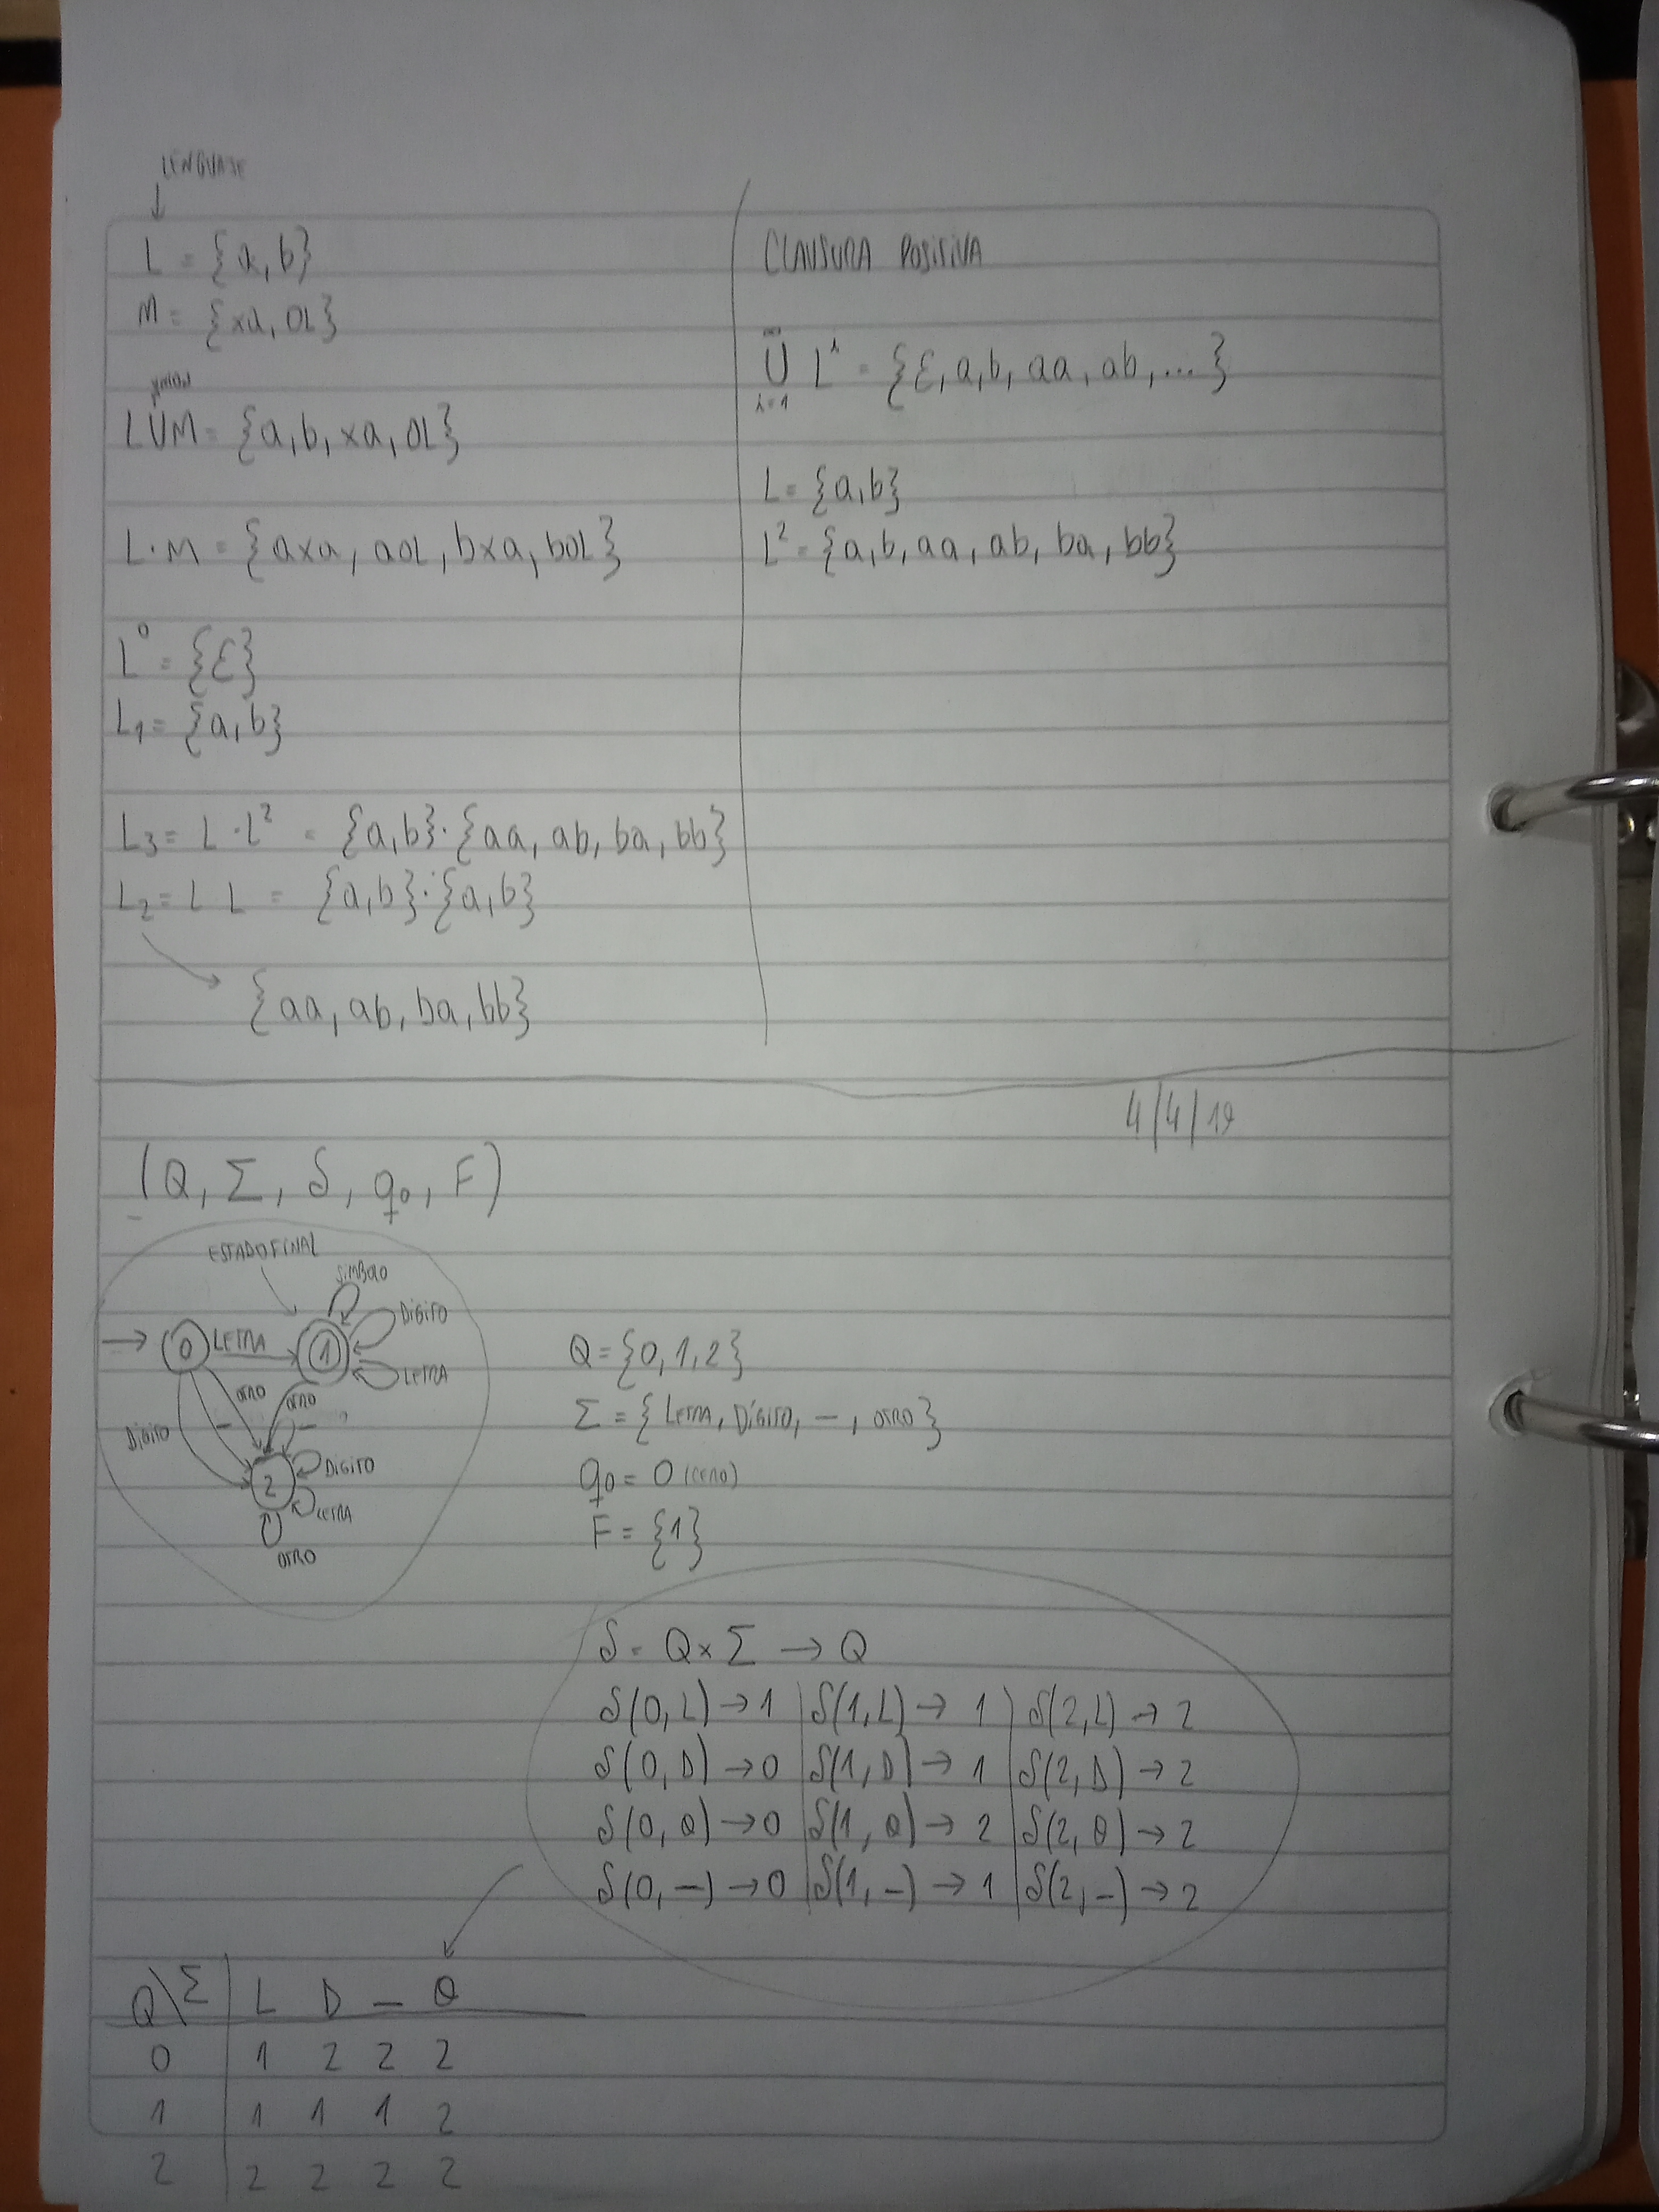 LENGUAJE
↓
L = {a, b}
M = {xa, OL}
UNION
LUM = {a, b, xa, OL}
L·M = {axa, aOL, bxa, bOL}
L⁰ = {ε}
L₁ = {a, b}
L₃ = L·L² = {a, b}·{aa, ab, ba, bb}
L₂ = L L = {a, b}·{a, b}
{aa, ab, ba, bb}
CLAUSURA POSITIVA
∞
U Lⁱ = {ε, a, b, aa, ab, ...}
i=1
L = {a, b}
L² = {a, b, aa, ab, ba, bb}
4/4/19
(Q, Σ, δ, q₀, F)
ESTADO FINAL
SIMBOLO
→ 0 LETRA 1 DIGITO
LETRA
OTRO OTRO
DIGITO — —
2 DIGITO
LETRA
OTRO
Q = {0, 1, 2}
Σ = {LETRA, DÍGITO, —, OTRO}
q₀ = 0 (CERO)
F = {1}
δ = Q x Σ → Q
δ(0, L) → 1 | δ(1, L) → 1 | δ(2, L) → 2
δ(0, D) → 0 | δ(1, D) → 1 | δ(2, D) → 2
δ(0, O) → 0 | δ(1, O) → 2 | δ(2, O) → 2
δ(0, —) → 0 | δ(1, —) → 1 | δ(2, —) → 2
Q\Σ | L D — O
0 | 1 2 2 2
1 | 1 1 1 2
2 | 2 2 2 2